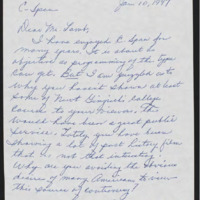 Jan 10, 1997
C-Span
Dear Mr. Lamb,
I have enjoyed C-Span for
many years. It is about as
objective as programming of the type
can get. But I am puzzled as to
why you haven't shown at least
some of Newt Gingrich's college
courses to your viewers. This
would have been a great public
service. Lately you have been
showing a lot of past history from
that is not that interesting
Why are you avoiding the obvious
desire of many Americans to view
this source of controversy?